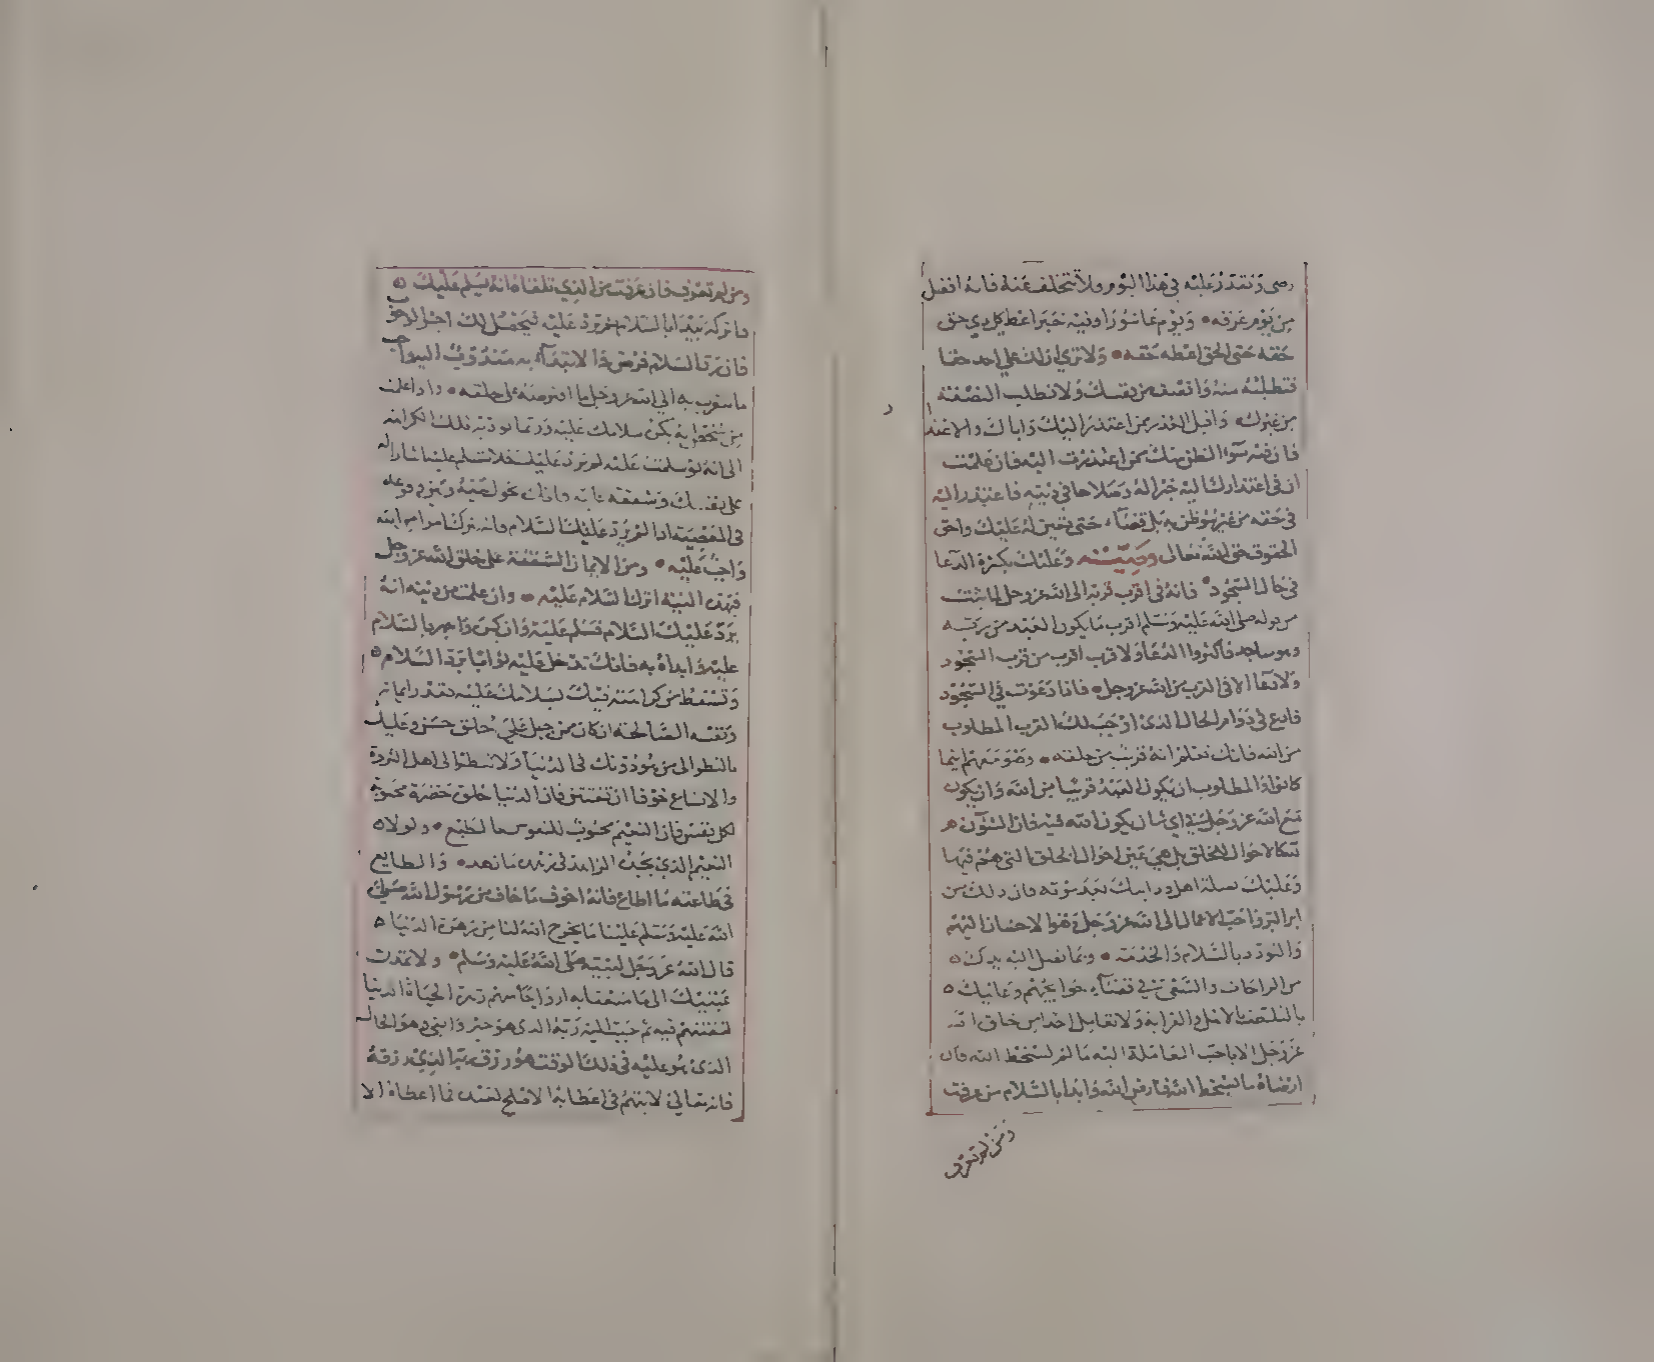 رضى وتقدر عليه في هذا اليوم ولا تتخلف عنه فانه افضل
من يوم عرفه ويوم عاشورا ونيه خير اعط كل ذي حق
حقه حتى الحق اعطه حقه ولا ترى ان لك على احد حقا
فتطلبه منه وانصف من نفسك ولا تطلب النصفة
من غيرك واقبل العذر ممن اعتذر اليك واياك والاعتذار
فان فيه سوء الظن منك بمن اعتذرت اليه فان علمت
ان في اعتذارك اليه خيرا له وصلاحا في دينه فاعتذر اليه
في حقه من غير سوء ظن به بل قضاء حتى يتعين له عليك واحق
الحقوق حق الله تعالى وصية وعليك بكثرة الدعا
في حال السجود فانه في اقرب قربة الى الله عز وجل لما ثبت
من قوله صلى الله عليه وسلم اقرب ما يكون العبد من ربه
وهو ساجد فاكثروا الدعا ولا قرب اقرب من قرب السجود
ولا دعا الا في القرب من الله عز وجل فاذا دعوت في السجود
فادع في دوام الحال الذي اوجب لك القرب المطلوب
من الله فانك تعلم انه قريب من خلقه وهو معهم اينما
كانوا والمطلوب ان يكون العبد قريبا من الله وان يكون
مع الله عز وجل في اي شان يكون الله فيه فان الشؤن
لله كالاحوال للخلق بل هي عين احوال الخلق التي هم فيها
وعليك بصلة اهل ود ابيك بعد موته فان ذلك من
ابر البر واحب الاعمال الى الله عز وجل وهو الاحسان اليهم
والتودد بالسلام والخدمة وبما تصل اليه يدك
من الراحات والسعي في قضاء حوائجهم وعليك
بالتلطف بالاهل والقرابة ولا تعامل احدا من خلق الله
عز وجل الا باحب المعاملة اليه ما لم تسخط الله فان
ارضاه ما يسخط الله فارض الله وابدا بالسلام من عرفت
ومن لم تعرف
ومن لم تعرف فان عرفت من الذي تلقاه انه يسلم عليك
فاتركه يبدا بالسلام ثم ترد عليه فيحصل لك اجر الوجوب
فان رد السلام فرض والابتداء به مندوب اليه واحب
ما يتقرب به الى الله عز وجل ما افترضه على خلقه واذا علمت
من شخص انه يكره سلامك عليه وربما تؤديه تلك الكراهة
الى انه لو سلمت عليه لم يرد عليك فلا تسلم عليه ايثارا له
على نفسك وشفقة عليه فانك تحول بينه وبين وقوعه
في المعصية اذا لم يرد عليك السلام فانه يترك امرا من الله
واجب عليه ومن الايمان الشفقة على خلق الله عز وجل
فبهذه النية اترك السلام عليه وان علمت من دينه انه
يرد عليك السلام فسلم عليه وان كره واجهر بالسلام
عليه وابداه به فانك تدخل عليه ثوابا برد السلام
وتسقط من كراهته فيك بسلامك عليه بقدر ايمانه
ونفسه الصالحة ان كان ممن جبل على خلق حسن وعليك
بالنظر الى من هو دونك في الدنيا ولا تنظر الى اهل الثروة
والاتساع خوفا ان تفتتن فان الدنيا حلوة خضرة محبوبة
لكل نفس فان النعيم محبوب للنفوس بالطبع ولولا
النعيم الذي يجده الزاهد في زهده ما زهد والطايع
في طاعته ما اطاع فانه اخوف ما خاف من رسول الله صلى
الله عليه وسلم علينا ما يخرج الله لنا من زهرة الدنيا
قال الله عز وجل لنبيه صلى الله عليه وسلم ولا تمدن
عينيك الى ما متعنا به ازواجا منهم زهرة الحياة الدنيا
لنفتنهم فيه ثم حبب اليه رزق ربه الذي هو خير وابقى وهو الحال
الذي هو عليه في ذلك الوقت هو رزق ربه الذي رزقه
فانه تعالى لا يتهم في اعطائه الاصلح لعبده فما اعطاه الا